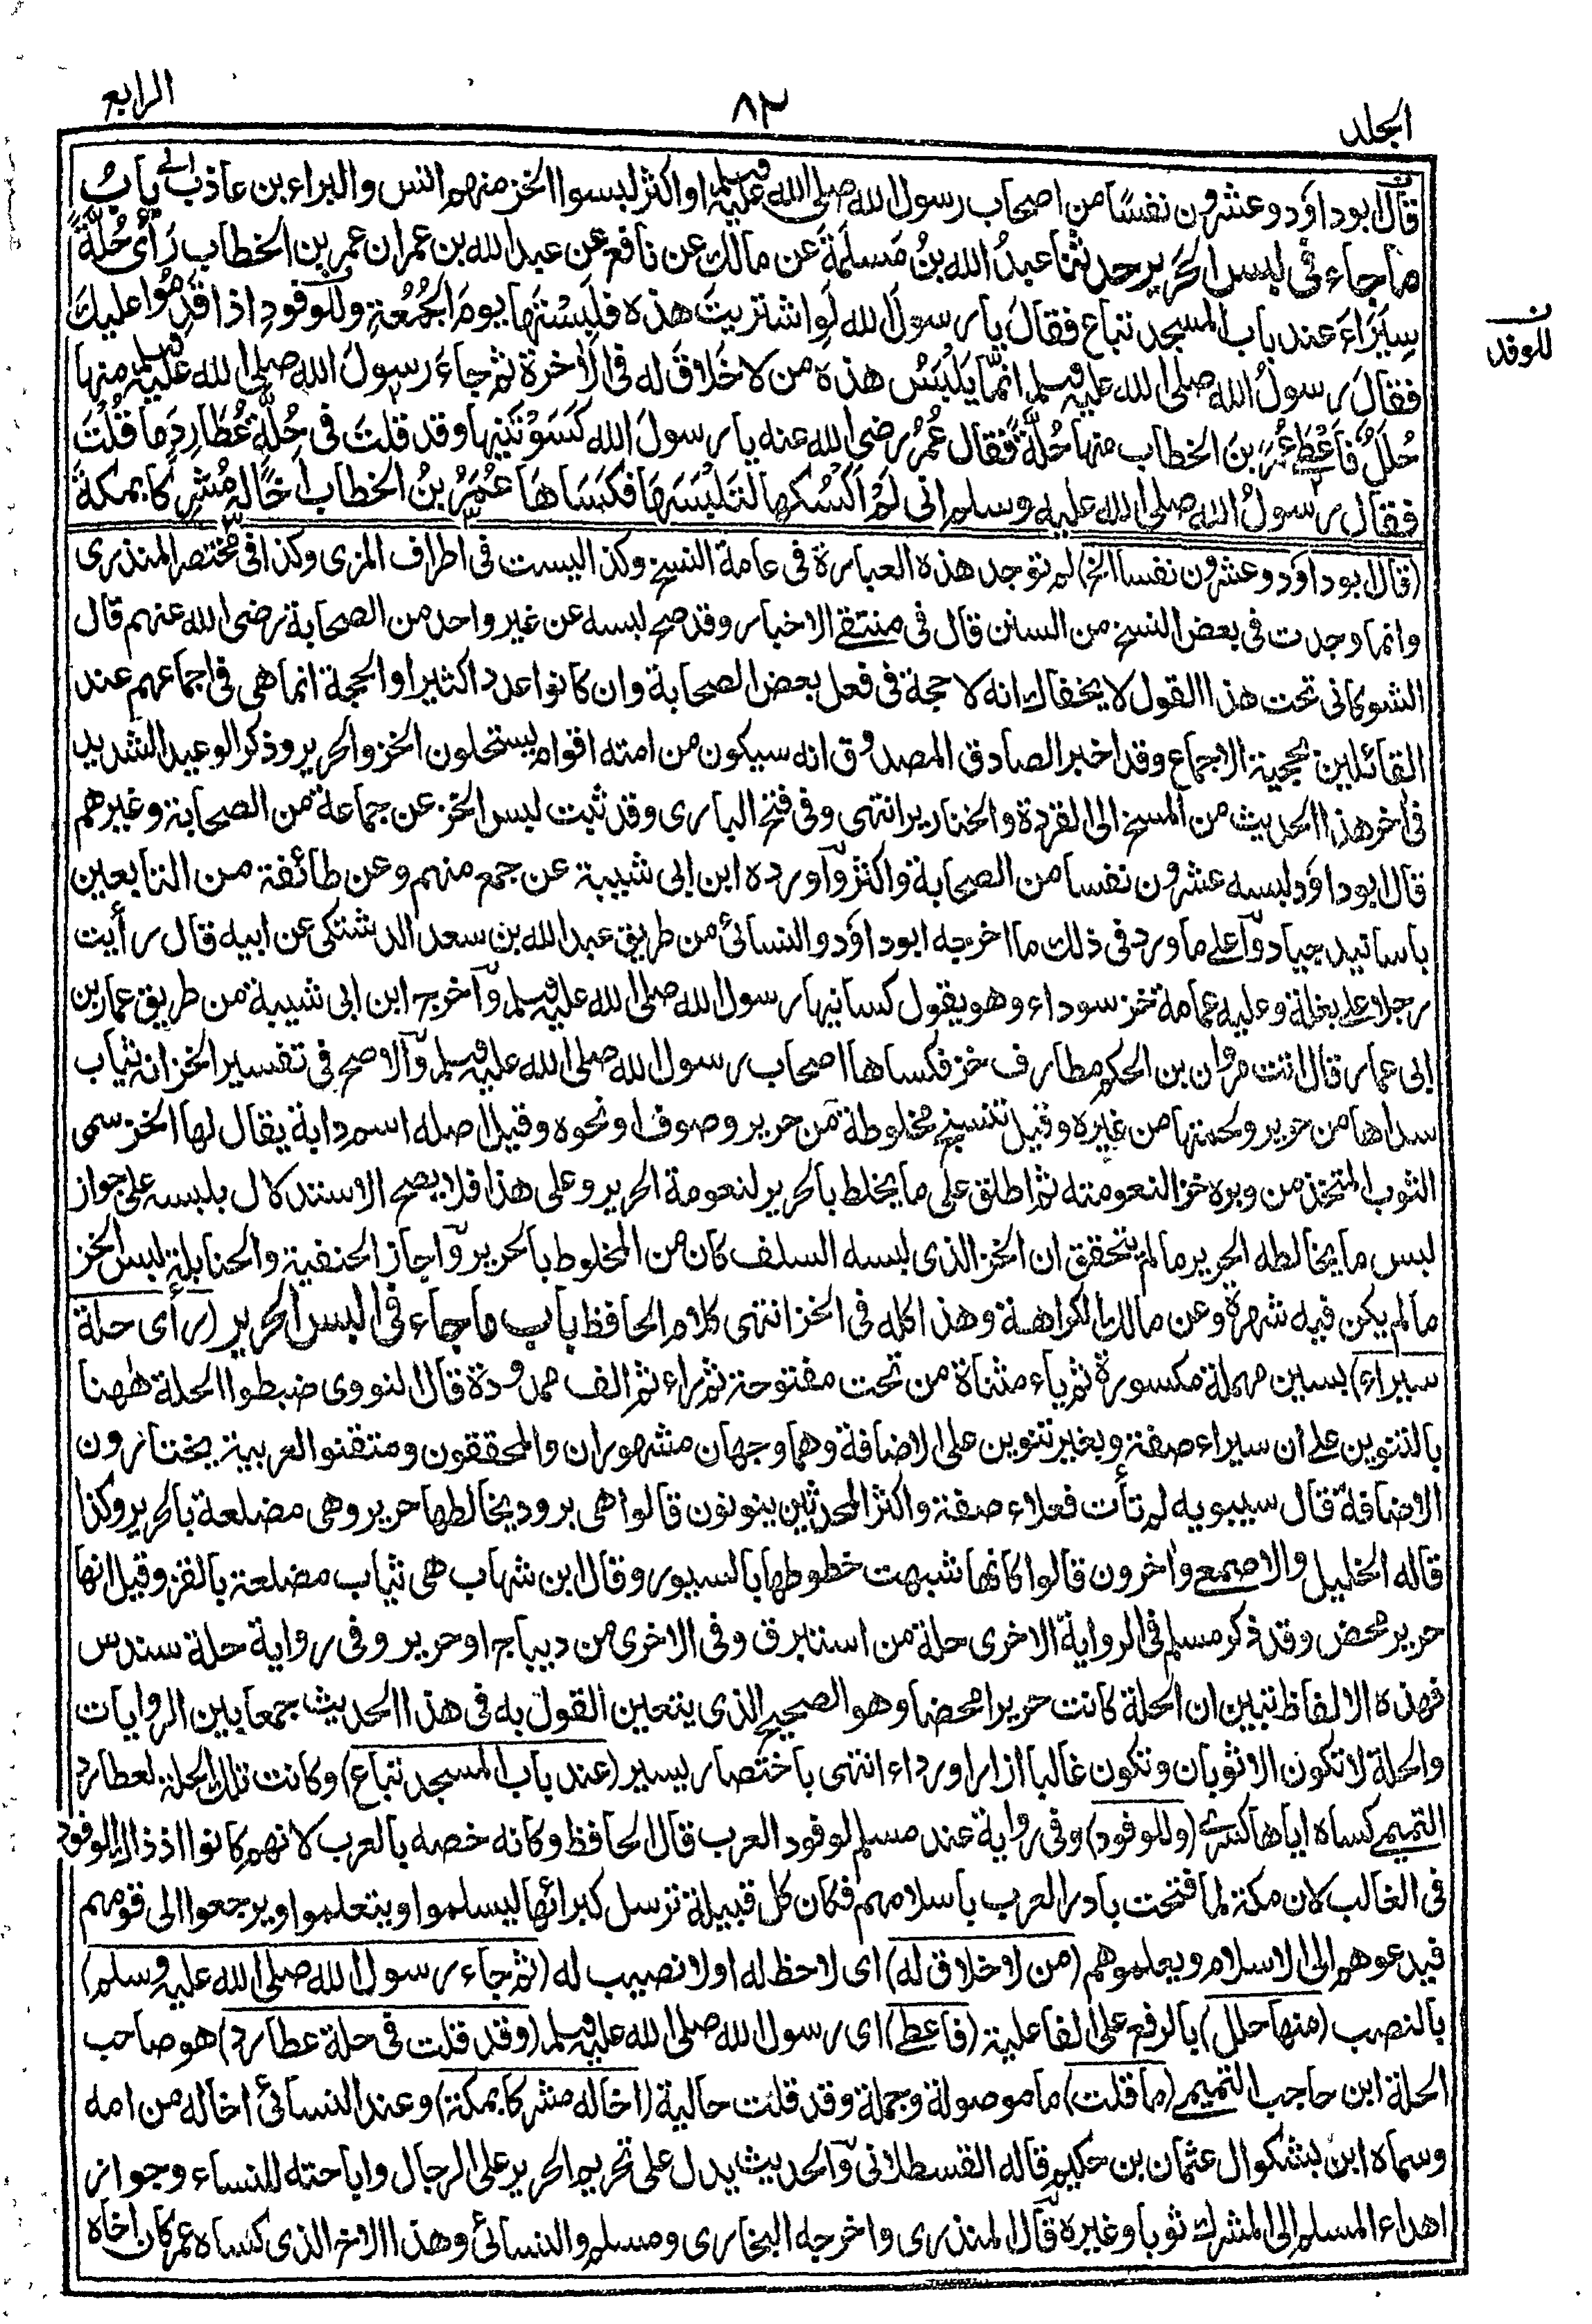 المجلد
٨٢
الرابع
قال ابو داود وعشرون نفسًا من اصحاب رسول الله صلى الله عليه وسلم او اكثر لبسوا الخز منهم انس والبراء بن عاذب باب
ما جاء في لبس الحرير حدثنا عبدُ الله بنُ مَسلَمَةَ عن مالك عن نافع عن عبد الله بن عمر ان عمر بن الخطاب رَأى حُلَّةً
سِيَرَاءَ عند باب المسجد تباع فقالَ يا رسولَ الله لَوِ اشتريتَ هذه فلَبِسْتَها يومَ الجُمُعةِ وللوفودِ اذا قَدِمُوا عليك
للوفد
فقالَ رسولُ الله صلى الله عليه وسلم انّما يَلْبَسُ هذه من لا خَلاقَ له فى الآخرة ثم جاءَ رسولَ الله صلى الله عليه وسلم منها
حُلَلٌ فاَعْطٰى عُمَرَ بنَ الخطاب منها حُلَّةً فقال عُمَرُ رضى الله عنه يا رسولَ الله كَسَوْتَنِيها وقد قلتَ فى حُلَّةِ عُطَارِدٍ ما قُلْتَ
فقال رسولُ الله صلى الله عليه وسلم انى لَمْ اَكْسُكَها لتَلْبَسَهَا فكَسَاهَا عُمَرُ بنُ الخطاب اَخًا له مُشرِكا بمكةَ
(قال ابو داود وعشرون نفسا الخ) لم توجد هذه العبارة فى عامة النسخ وكذا ليست فى اطراف المزى وكذا فى مختصر المنذرى
وانما وجدت فى بعض النسخ من السنن قال فى منتقى الاخبار وقد صح لبسه عن غير واحد من الصحابة رضى الله عنهم قال
الشوكانى تحت هذا القول لا يخفاك انه لا حجة فى فعل بعض الصحابة وان كانوا عددا كثيرا والحجة انما هى فى اجماعهم عند
القائلين بحجية الاجماع وقد اخبر الصادق المصدوق انه سيكون من امته اقوام يستحلون الخز والحرير وذكر الوعيد الشديد
فى آخر هذا الحديث من المسخ الى القردة والخنازير انتهى وفى فتح البارى وقد ثبت لبس الخز عن جماعة من الصحابة وغيرهم
قال ابو داود لبسه عشرون نفسا من الصحابة واكثر واورده ابن ابى شيبة عن جمع منهم وعن طائفة من التابعين
باسانيد جياد واعلى ما ورد فى ذلك ما اخرجه ابو داود والنسائى من طريق عبد الله بن سعد الدشتكى عن ابيه قال رأيت
رجلا على بغلة وعليه عمامة خز سوداء وهو يقول كسانيها رسول الله صلى الله عليه وسلم واخرج ابن ابى شيبة من طريق عمار بن
ابى عمار قال اتت مروان بن الحكم مطارف خز فكساها اصحاب رسول الله صلى الله عليه وسلم والاصح فى تفسير الخز انه ثياب
سداها من حرير ولحمتها من غيره وقيل تنسج مخلوطة من حرير وصوف او نحوه وقيل اصله اسم دابة يقال لها الخز سمى
الثوب المتخذ من وبره خزا لنعومته ثم اطلق على ما يخلط بالحرير لنعومة الحرير وعلى هذا فلا يصح الاستدلال بلبسه على جواز
لبس ما يخالطه الحرير ما لم يتحقق ان الخز الذى لبسه السلف كان من المخلوط بالحرير واجاز الحنفية والحنابلة لبس الخز
ما لم يكن فيه شهرة وعن مالك الكراهة وهذا كله فى الخز انتهى كلام الحافظ باب ما جاء فى لبس الحرير (رأى حلة
سيراء) بسين مهملة مكسورة ثم ياء مثناة من تحت مفتوحة ثم راء ثم الف ممدودة قال النووى ضبطوا الحلة هٰهنا
بالتنوين على ان سيراء صفة وبغير تنوين على الاضافة وهما وجهان مشهوران والمحققون ومتقنو العربية يختارون
الاضافة قال سيبويه لم تأت فعلاء صفة واكثر المحدثين ينونون قالوا هى برود يخالطها حرير وهى مضلعة بالحرير وكذا
قاله الخليل والاصمعى وآخرون قالوا كانها شبهت خطوطها بالسيور وقال ابن شهاب هى ثياب مضلعة بالقز وقيل انها
حرير محض وقد ذكر مسلم فى الرواية الاخرى حلة من استبرق وفى الاخرى من ديباج او حرير وفى رواية حلة سندس
فهذه الالفاظ تبين ان الحلة كانت حريرا محضا وهو الصحيح الذى يتعين القول به فى هذا الحديث جمعا بين الروايات
والحلة لا تكون الا ثوبان وتكون غالبا ازارا ورداء انتهى باختصار يسير (عند باب المسجد تباع) وكانت تلك الحلة لعطارد
التميمى كساه اياها كسرى (وللوفود) وفى رواية عند مسلم لوفود العرب قال الحافظ وكانه خصه بالعرب لانهم كانوا اذ ذاك الوفود
فى الغالب لان مكة لما فتحت بادر العرب باسلامهم فكان كل قبيلة ترسل كبرائها ليسلموا ويتعلموا ويرجعوا الى قومهم
فيدعوهم الى الاسلام ويعلموهم (من لا خلاق له) اى لا حظ له او لا نصيب له (ثم جاء رسول الله صلى الله عليه وسلم)
بالنصب (منها حلل) بالرفع على الفاعلية (فاعطى) اى رسول الله صلى الله عليه وسلم (وقد قلت فى حلة عطارد) هو صاحب
الحلة ابن حاجب التميمى (ما قلت) ما موصولة وجملة وقد قلت حالية (اخا له مشركا بمكة) وعند النسائى اخا له من امه
وسماه ابن بشكوال عثمان بن حكيم قاله القسطلانى والحديث يدل على تحريم الحرير على الرجال واباحته للنساء وجواز
اهداء المسلم الى المشرك ثوبا وغيره قال المنذرى واخرجه البخارى ومسلم والنسائى وهذا الاخ الذى كساه عمر كان اخاه